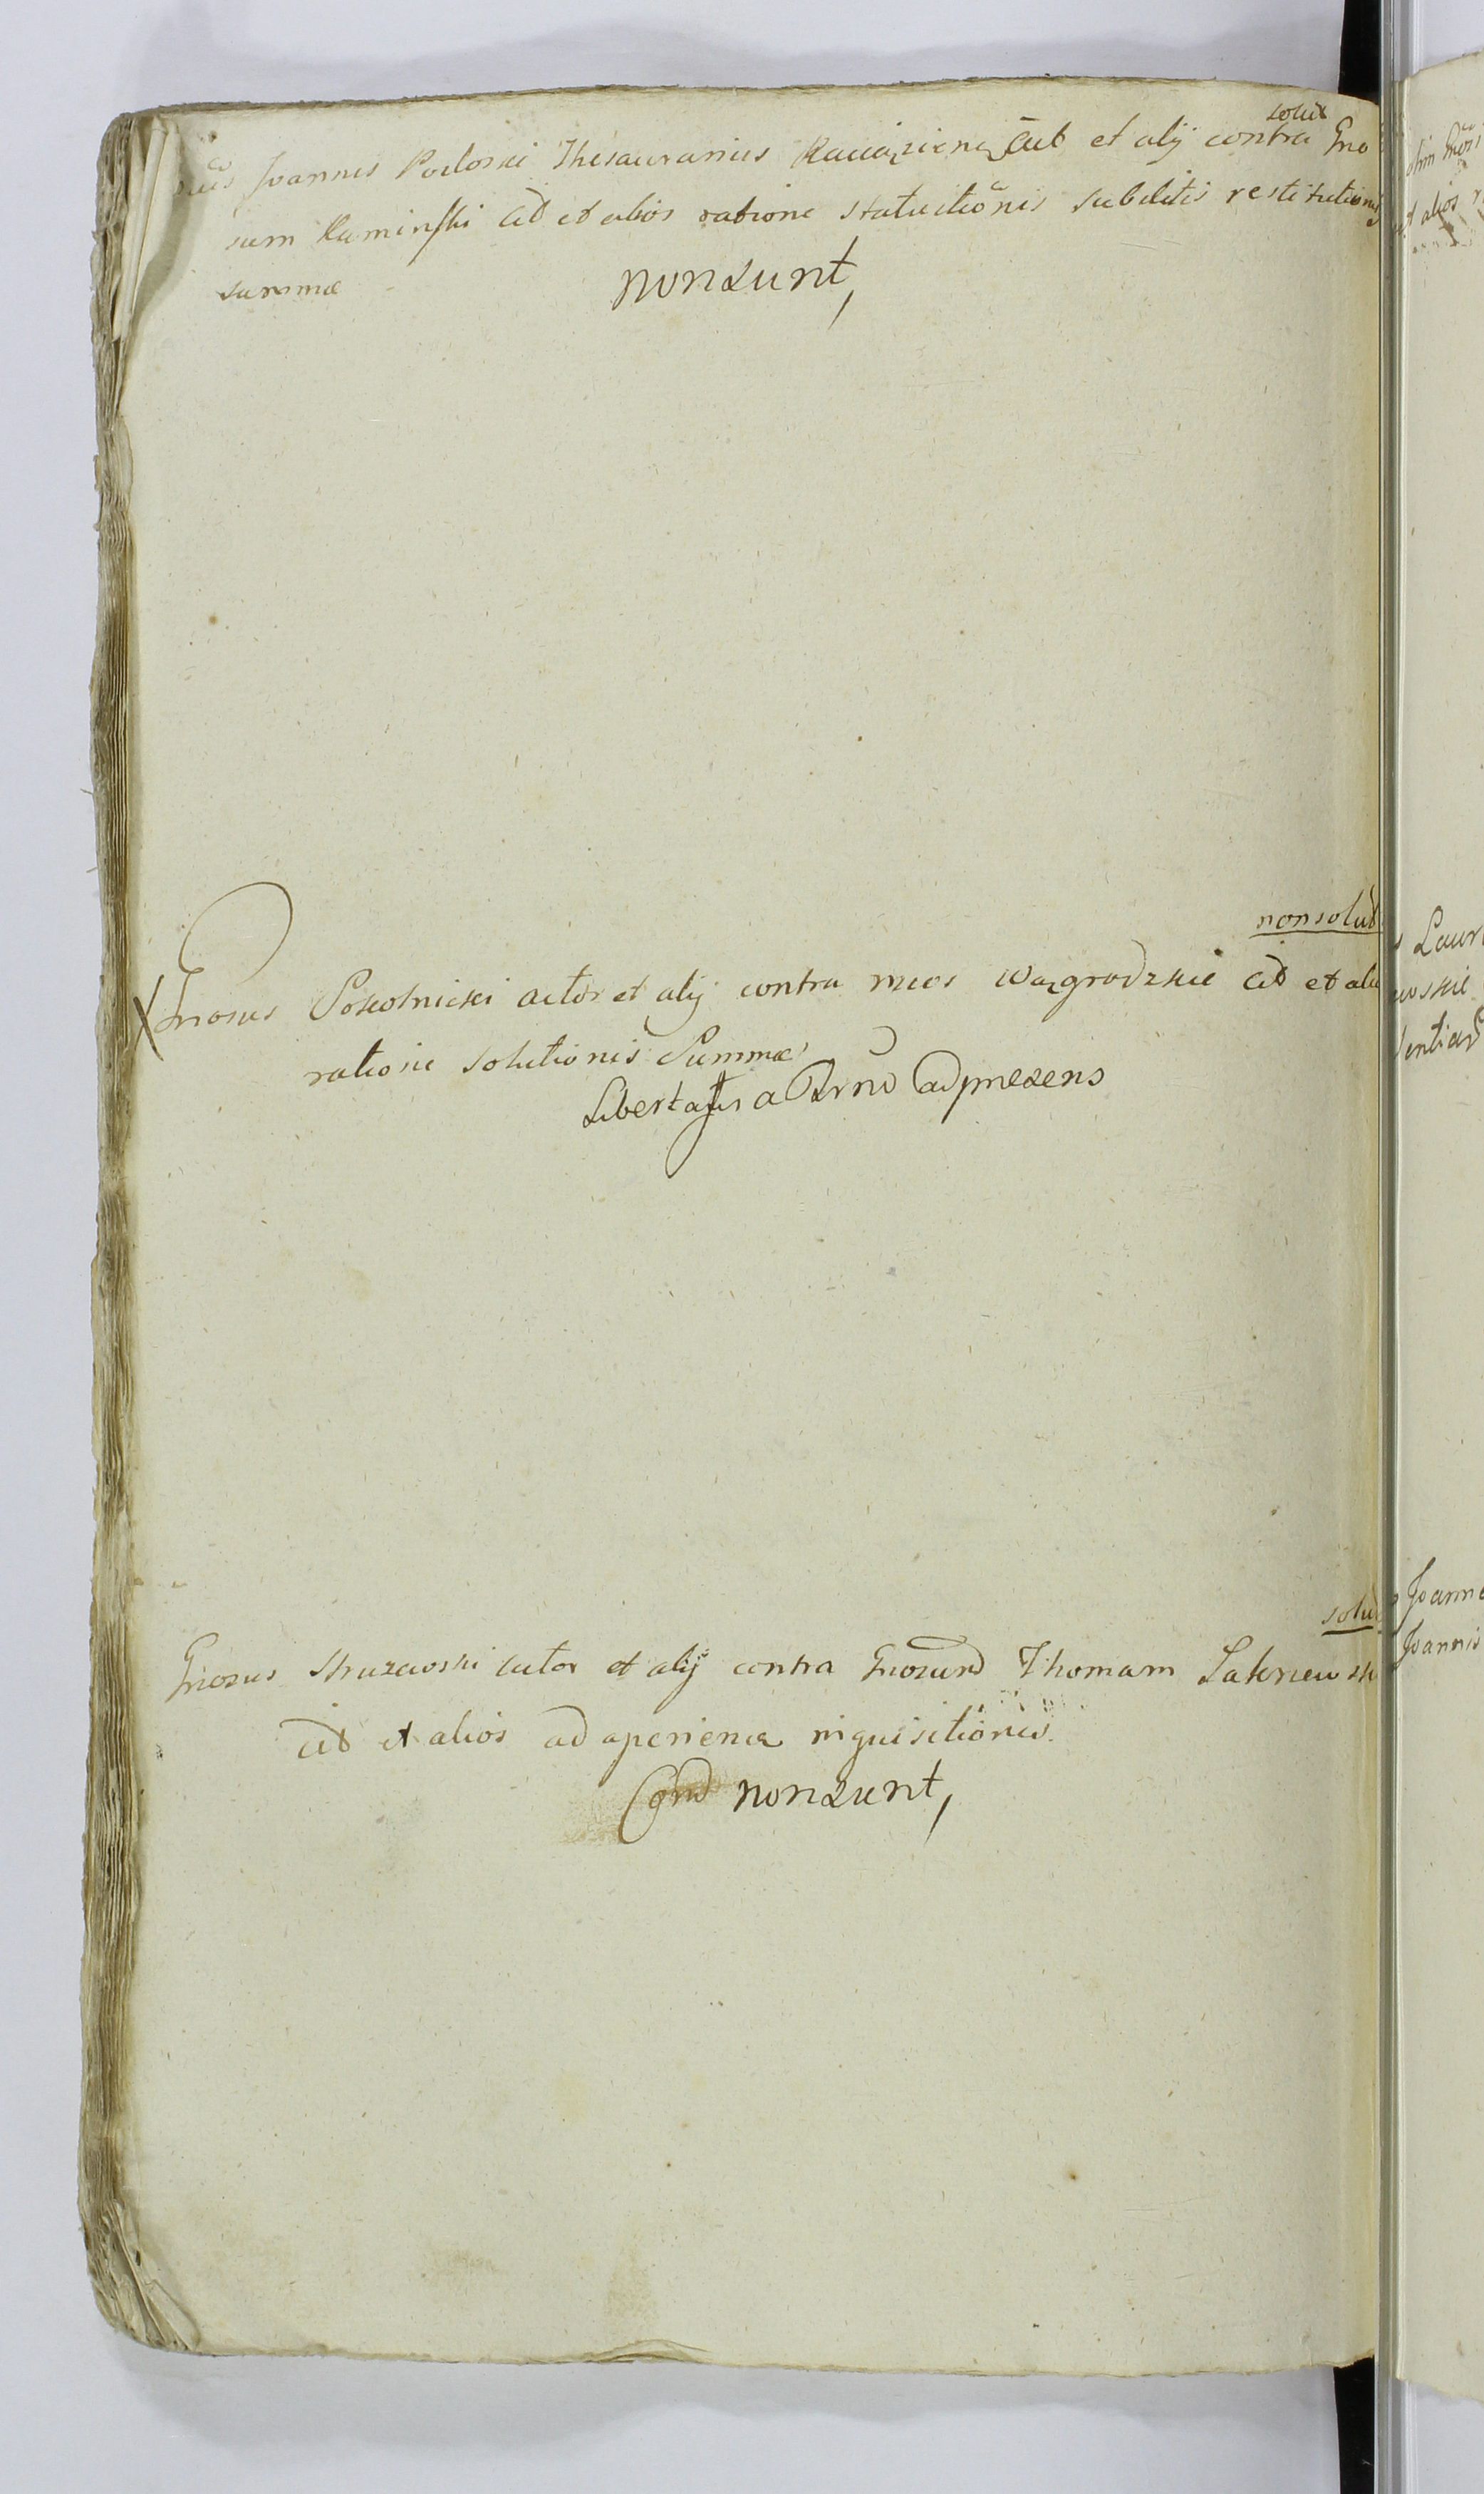 solut
Joannes Podoski Thesaurarius Raciązienę et alij contra Gno
sum Kaminski cit et alios ratione statuitionis subditis restitutionis
summæ
non sunt,
non solut
Gnosus Sokolnicki actor et alij contra mcos Wągrodzkie cit et alios
ratione solutionis Summæ
Libertatus a ad præsens
solut
Gnosus Struzewski actor et alij contra Gnosum Thomam
cit et alios ad aperiena inquisitiones.
Cond non sunt,
et alios
Laur
Joanne
Joannis